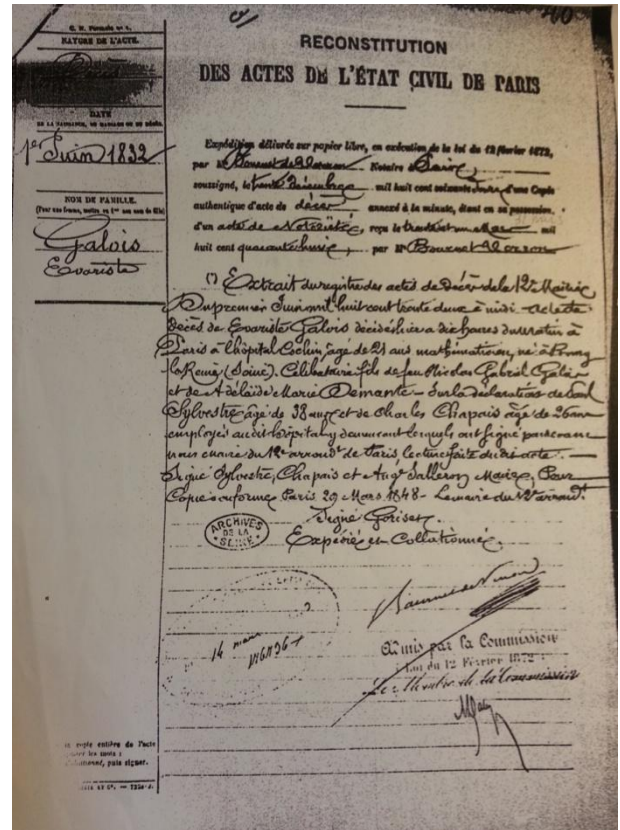 C. N. Formule nº 1.
NATURE DE L'ACTE.
DATE
DE LA NAISSANCE, DU MARIAGE OU DU DÉCÈS.
1er Juin 1832
NOM DE FAMILLE.
(Pour une femme, mettre son nom de fille)
Galois
Evariste
RECONSTITUTION
DES ACTES DE L'ÉTAT CIVIL DE PARIS
Expédition délivrée sur papier libre, en exécution de la loi du 12 février 1872,
par Mr Notaire à Paris
soussigné, le trente Décembre mil huit cent soixante d'une Copie
authentique d'acte de décès annexé à la minute, étant en sa possession.
d'un acte de Notoriété, reçu le trente et un Mars mil
huit cent quarante huit, par Mr
(1) Extrait du registre des actes de Décès de la 12e Mairie
Du premier Juin mil huit cent trente deux à midi - acte de
Décès de Evariste Galois décédé hier à dix heures du matin à
Paris à l'hôpital Cochin, âgé de 21 ans mathématicien, né à Bourg
la Reine (Seine). Célibataire fils de feu Nicolas Gabriel Galois
et de Adélaïde Marie Demante - Sur la déclaration de
Sylvestre âgé de 38 ans et de Charles Chapais âgé de 26 ans
employés audit hôpital y demeurant lesquels ont signé
nous maire du 12e arrondt de Paris lecture faite dudit acte -
Signé Sylvestre, Chapais et Augte Salleron Maire, Pour
Copie conforme Paris 29 Mars 1848 - Le maire du 12e arrondt
Signé Gorisset
ARCHIVES
DE LA
SEINE
Expédié et Collationné.
14 mars
Admis par la Commission
Loi du 12 Février 1872
Le Membre de la Commission
copie entière de l'acte
les mots :
puis signer.